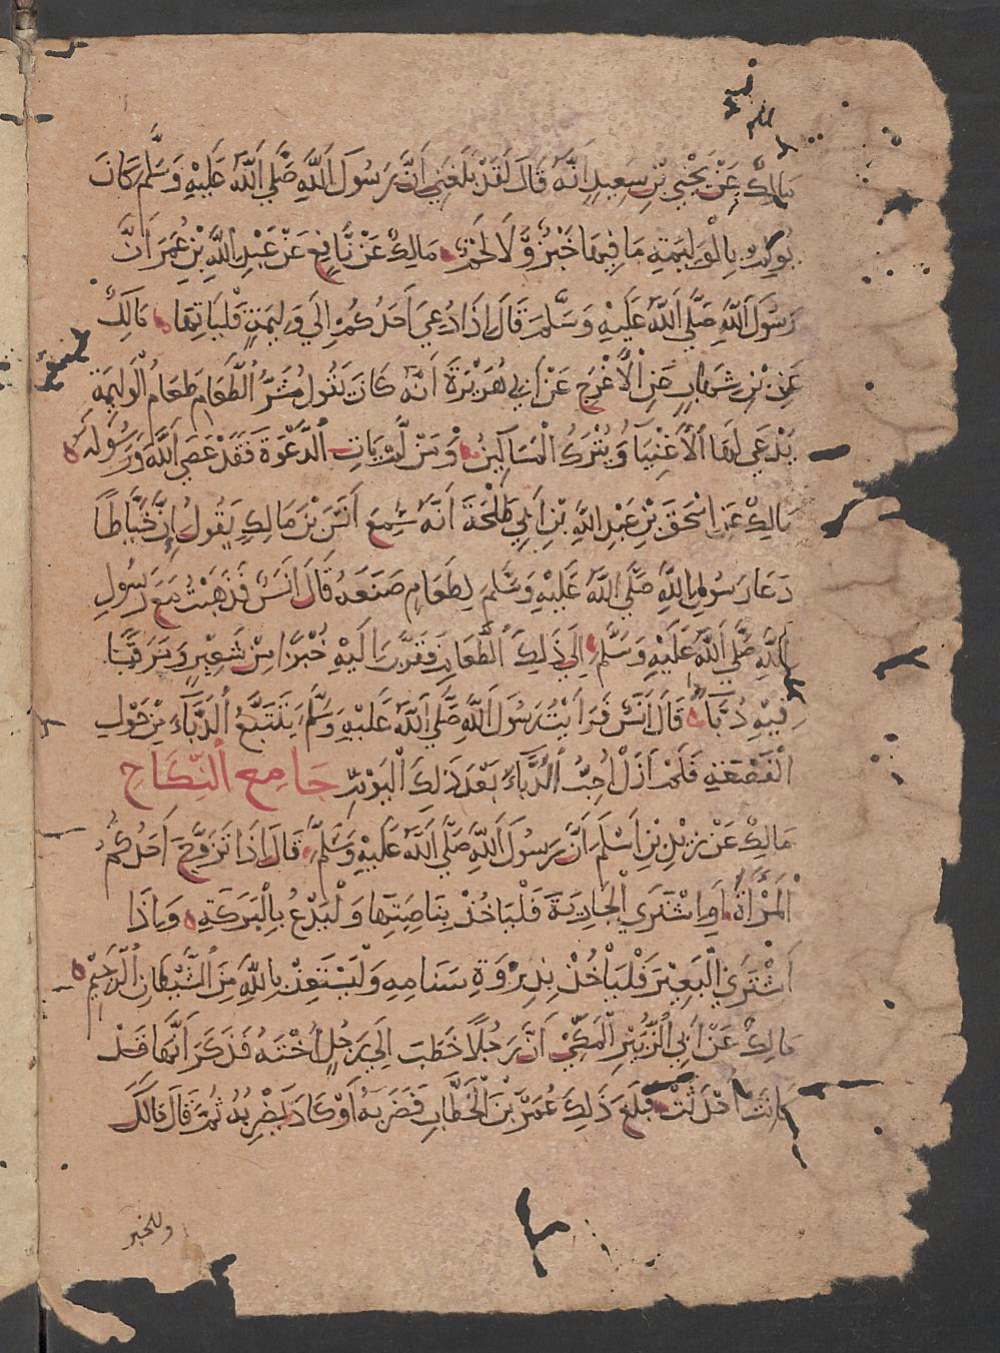 مَالِكٌ عَنْ يَحْيَي بْنِ سَعِيدٍ أَنَّهُ قَالَ لَقَدْ بَلَغَنِي أَنَّ رَسُولَ اللَّهِ صَلَّي اللَّهُ عَلَيْهِ وَسَلَّمَ كَانَ
يُولِمُ بِالْوَلِيمَةِ مَا فِيهَا خُبْزٌ وَّلَا لَحْمٌ مَالِكٌ عَنْ نَّافِعٍ عَنْ عَبْدِ اللَّهِ بْنِ عُمَرَ أَنَّ
رَسُولَ اللَّهِ صَلَّي اللَّهُ عَلَيْهِ وَسَلَّمَ قَالَ إِذَا دُعِيَ أَحَدُكُمْ إِلَي وَلِيمَةٍ فَلْيَاتِهَا مَالِكٌ
عَنِ بْنِ شِهَابٍ عَنِ الْأَعْرَجِ عَنْ أَبِي هُرَيْرَةَ أَنَّهُ كَانَ يَقُولُ شَرُّ الطَّعَامِ طَعَامُ الْوَلِيمَةِ
يُدْعَي لَهَا الْأَغْنِيَآءُ وَيُتْرَكُ الْمَسَاكِينُ وَمَن لَّمْ يَاتِ الدَّعْوَةَ فَقَدْ عَصَي اللَّهَ وَرَسُولَهُ
مَالِكٌ عَنْ إِسْحَقَ بْنِ عَبْدِ اللَّهِ بْنِ أَبِي طَلْحَةَ أَنَّهُ سَمِعَ أَنَسَ بْنَ مَالِكٍ يَقُولُ إِنَّ خَيَّاطًا
دَعَا رَسُولَ اللَّهِ صَلَّي اللَّهُ عَلَيْهِ وَسَلَّمَ لِطَعَامٍ صَنَعَهُ قَالَ أَنَسٌ فَذَهَبْتُ مَعَ رَسُولِ
اللَّهِ صَلَّي اللَّهُ عَلَيْهِ وَسَلَّمَ إِلَي ذَلِكَ الطَّعَامِ فَقَرَّبَ إِلَيْهِ خُبْزًا مِنْ شَعِيرٍ وَمَرَقًا
فِيهِ دُبَّآءٌ قَالَ أَنَسٌ فَرَأَيْتُ رَسُولَ اللَّهِ صَلَّي اللَّهُ عَلَيْهِ وَسَلَّمَ يَتَتَبَّعُ الدُّبَّآءَ مِنْ حَوْلِ
الْقَصْعَةِ فَلَمْ أَزَلْ أُحِبُّ الدُّبَّآءَ بَعْدَ ذَلِكَ الْيَوْمِ جَامِع النِّكَاحِ
مَالِكٌ عَنْ زَيْدِ بْنِ أَسْلَمَ أَنَّ رَسُولَ اللَّهِ صَلَّي اللَّهُ عَلَيْهِ وَسَلَّمَ قَالَ إِذَا تَزَوَّجَ أَحَدُكُمُ
الْمَرْأَةَ أَوِ اشْتَرَي الْجَارِيَةَ فَلْيَاخُذْ بِنَاصِيَتِهَا وَلْيَدْعُ بِالْبَرَكَةِ وَإِذَا
اشْتَرَي الْبَعِيرَ فَلْيَأْخُذْ بِذِرْوَةِ سَنَامِهِ وَلْيَسْتَعِذْ بِاللَّهِ مِنَ الشَّيْطَانِ الرَّجِيمِ
مَالِكٌ عَنْ أَبِي الزُّبَيْرِ الْمَكِّيِّ أَنَّ رَجُلًا خَطَبَ إِلَي رَجُلٍ أُخْتَهُ فَذَكَرَ أَنَّهَا قَدْ
كَانَتْ أَحْدَثَتْ فَبَلَغَ ذَلِكَ عُمَرَ بْنَ الْخَطَّابِ فَضَرَبَهُ أَوْ كَادَ يَضْرِبُهُ ثُمَّ قَالَ مَالَكَ
وللخبر